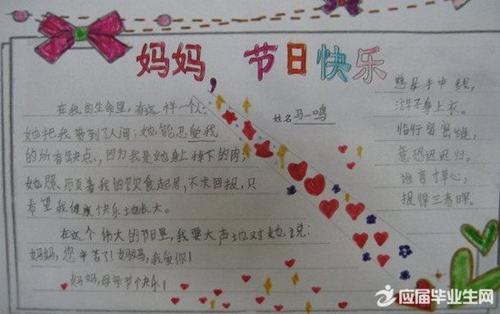 妈妈，节日快乐
姓名 马一鸣
在我的生命里，有这样一个人：
她把我带到了人间；她能忍受我
的所有缺点，因为我是她身上掉下的肉；
她照顾着我的饮食起居，不求回报，只
希望我健康快乐地成长。
在这个伟大的节日里，我要大声地对她说：
妈妈，您辛苦了！妈妈，我爱你！
妈妈，母亲节快乐！
慈母手中线，
游子身上衣。
临行密密缝，
意恐迟迟归。
谁言寸草心，
报得三春晖。
应届毕业生网